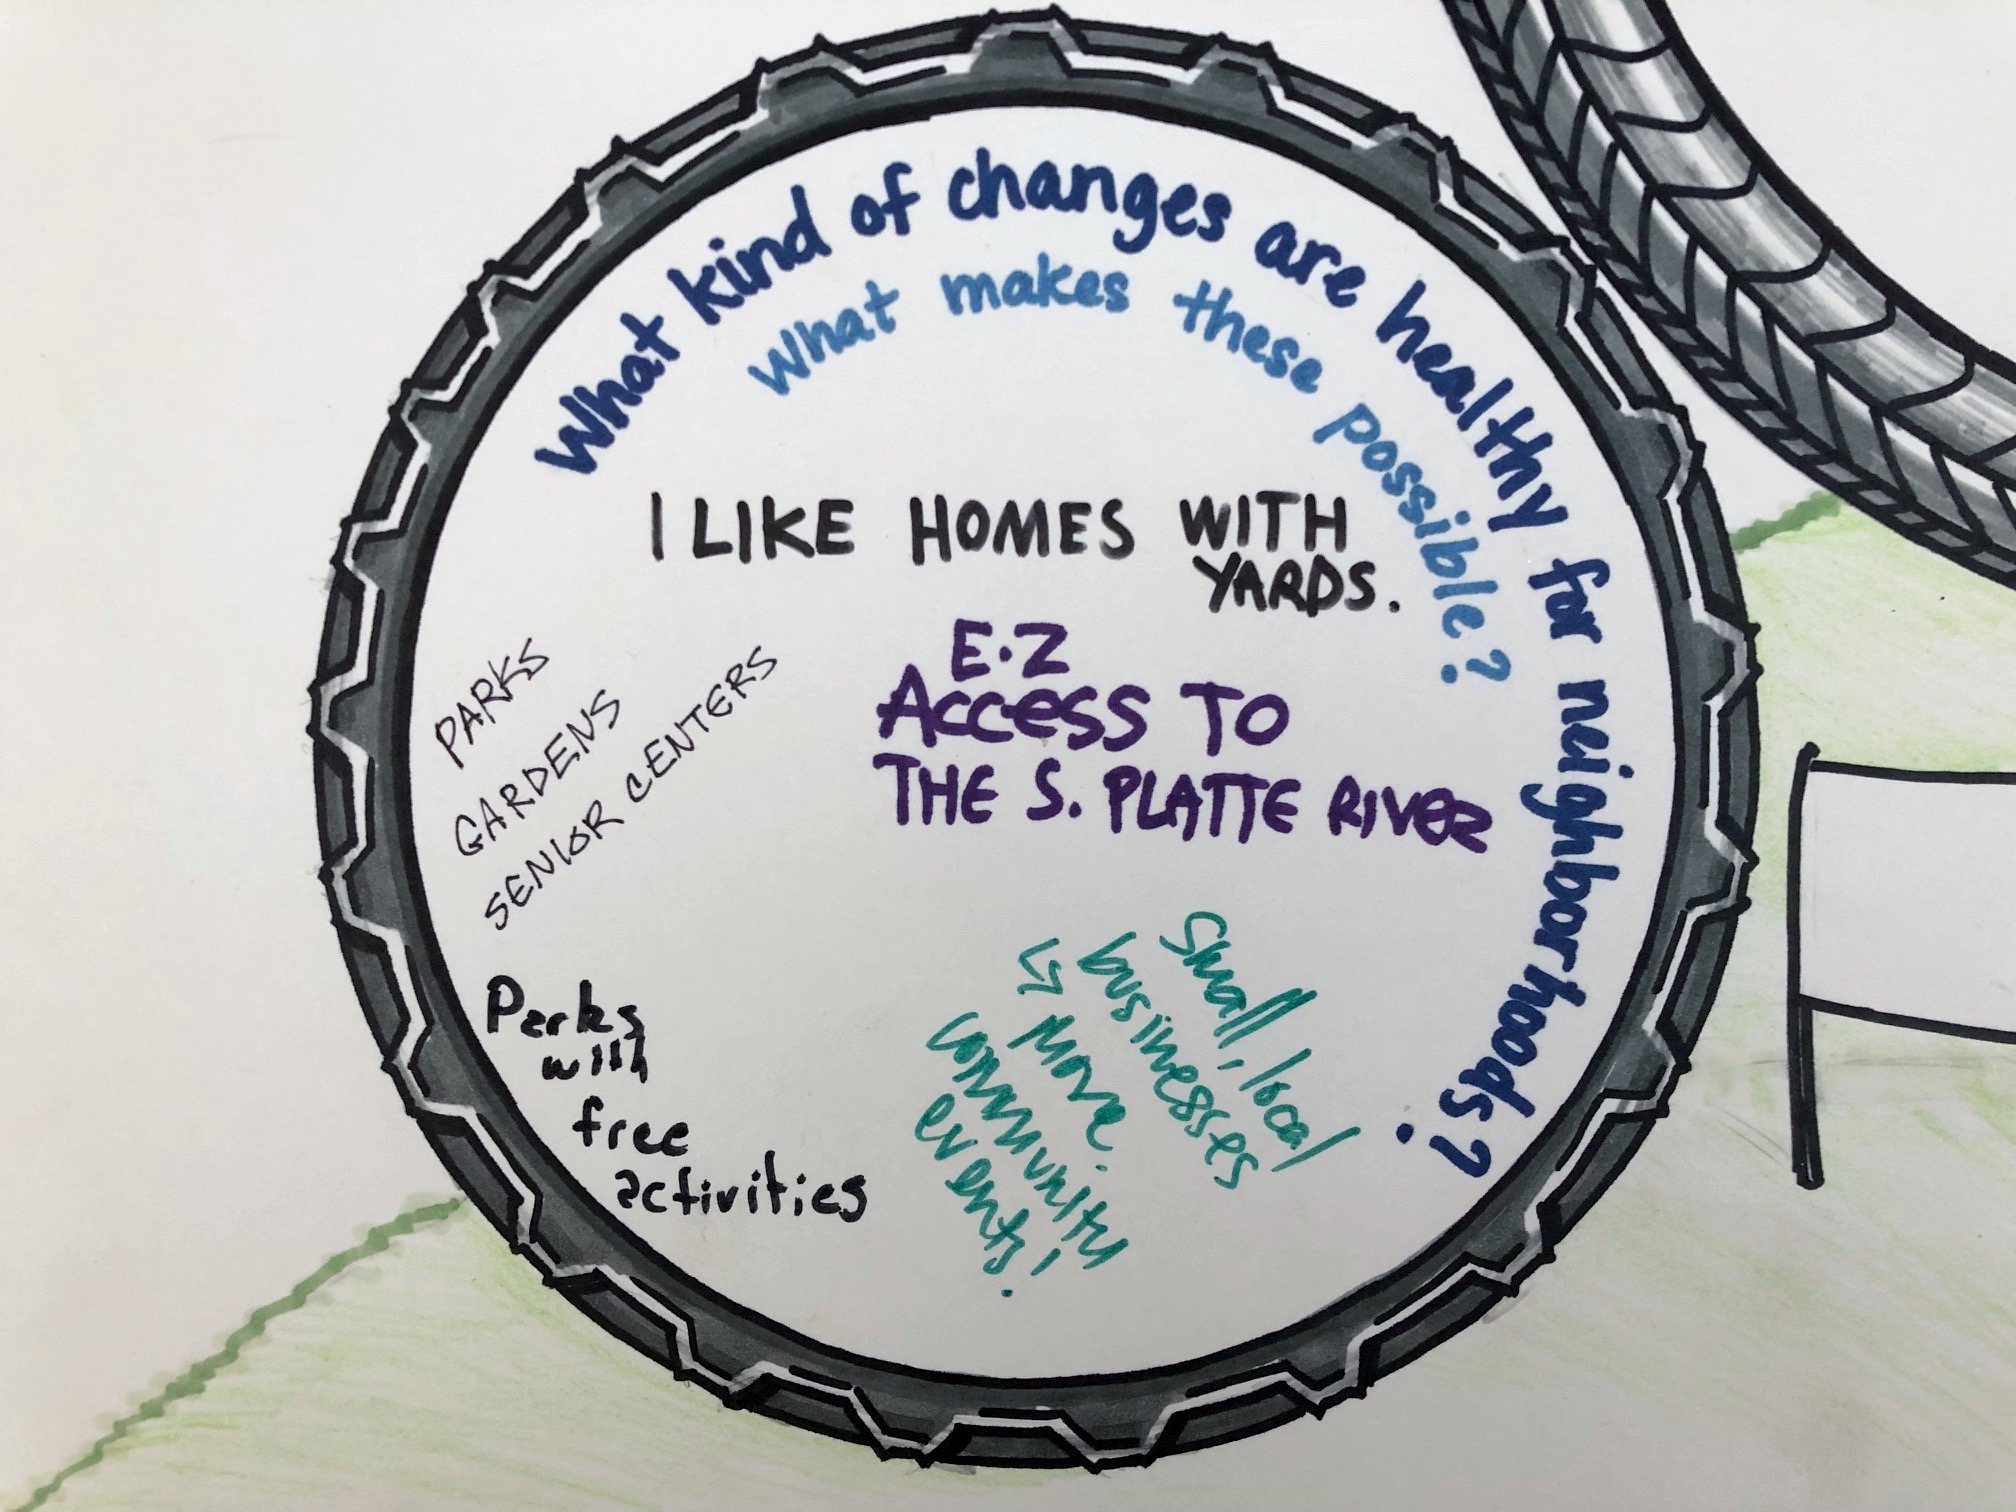 What kind of changes are healthy for neighborhoods?
What makes these possible?
I LIKE HOMES WITH
YARDS.
E·Z
ACCESS TO
THE S. PLATTE RIVER
PARKS
GARDENS
SENIOR CENTERS
Parks
with
free
activities
Small, local
businesses
↳ More
community
events!